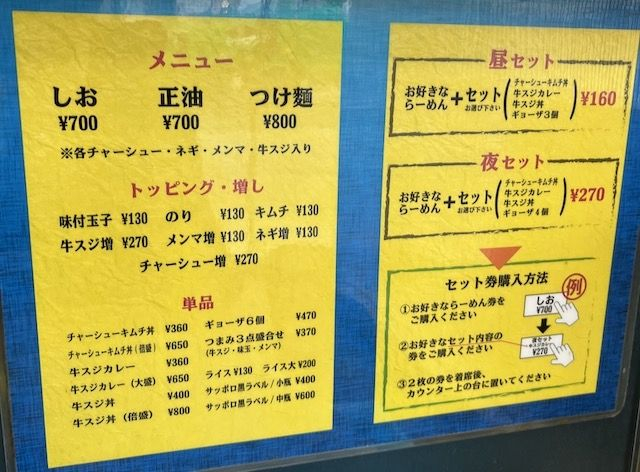 メニュー
しお 正油 つけ麺
¥700 ¥700 ¥800
※各チャーシュー・ネギ・メンマ・牛スジ入り
トッピング・増し
味付玉子 ¥130 のり ¥130 キムチ ¥130
牛スジ増 ¥270 メンマ増 ¥130 ネギ増 ¥130
チャーシュー増 ¥270
単品
チャーシューキムチ丼 ¥360
チャーシューキムチ丼(倍盛) ¥650
牛スジカレー ¥360
牛スジカレー(大盛) ¥650
牛スジ丼 ¥400
牛スジ丼(倍盛) ¥800
ギョーザ6個 ¥470
つまみ3点盛合せ ¥370
(牛スジ・味玉・メンマ)
ライス ¥130 ライス大 ¥200
サッポロ黒ラベル/小瓶 ¥400
サッポロ黒ラベル/中瓶 ¥600
昼セット
お好きならーめん+セット お選び下さい
チャーシューキムチ丼
牛スジカレー
牛スジ丼
ギョーザ3個
¥160
夜セット
お好きならーめん+セット お選び下さい
チャーシューキムチ丼
牛スジカレー
牛スジ丼
ギョーザ4個
¥270
セット券購入方法
例
①お好きならーめん券を
ご購入ください
しお
¥700
②お好きなセット内容の
券をご購入ください
夜セット
牛スジカレー
¥270
③2枚の券を着席後、
カウンター上の台に置いてください